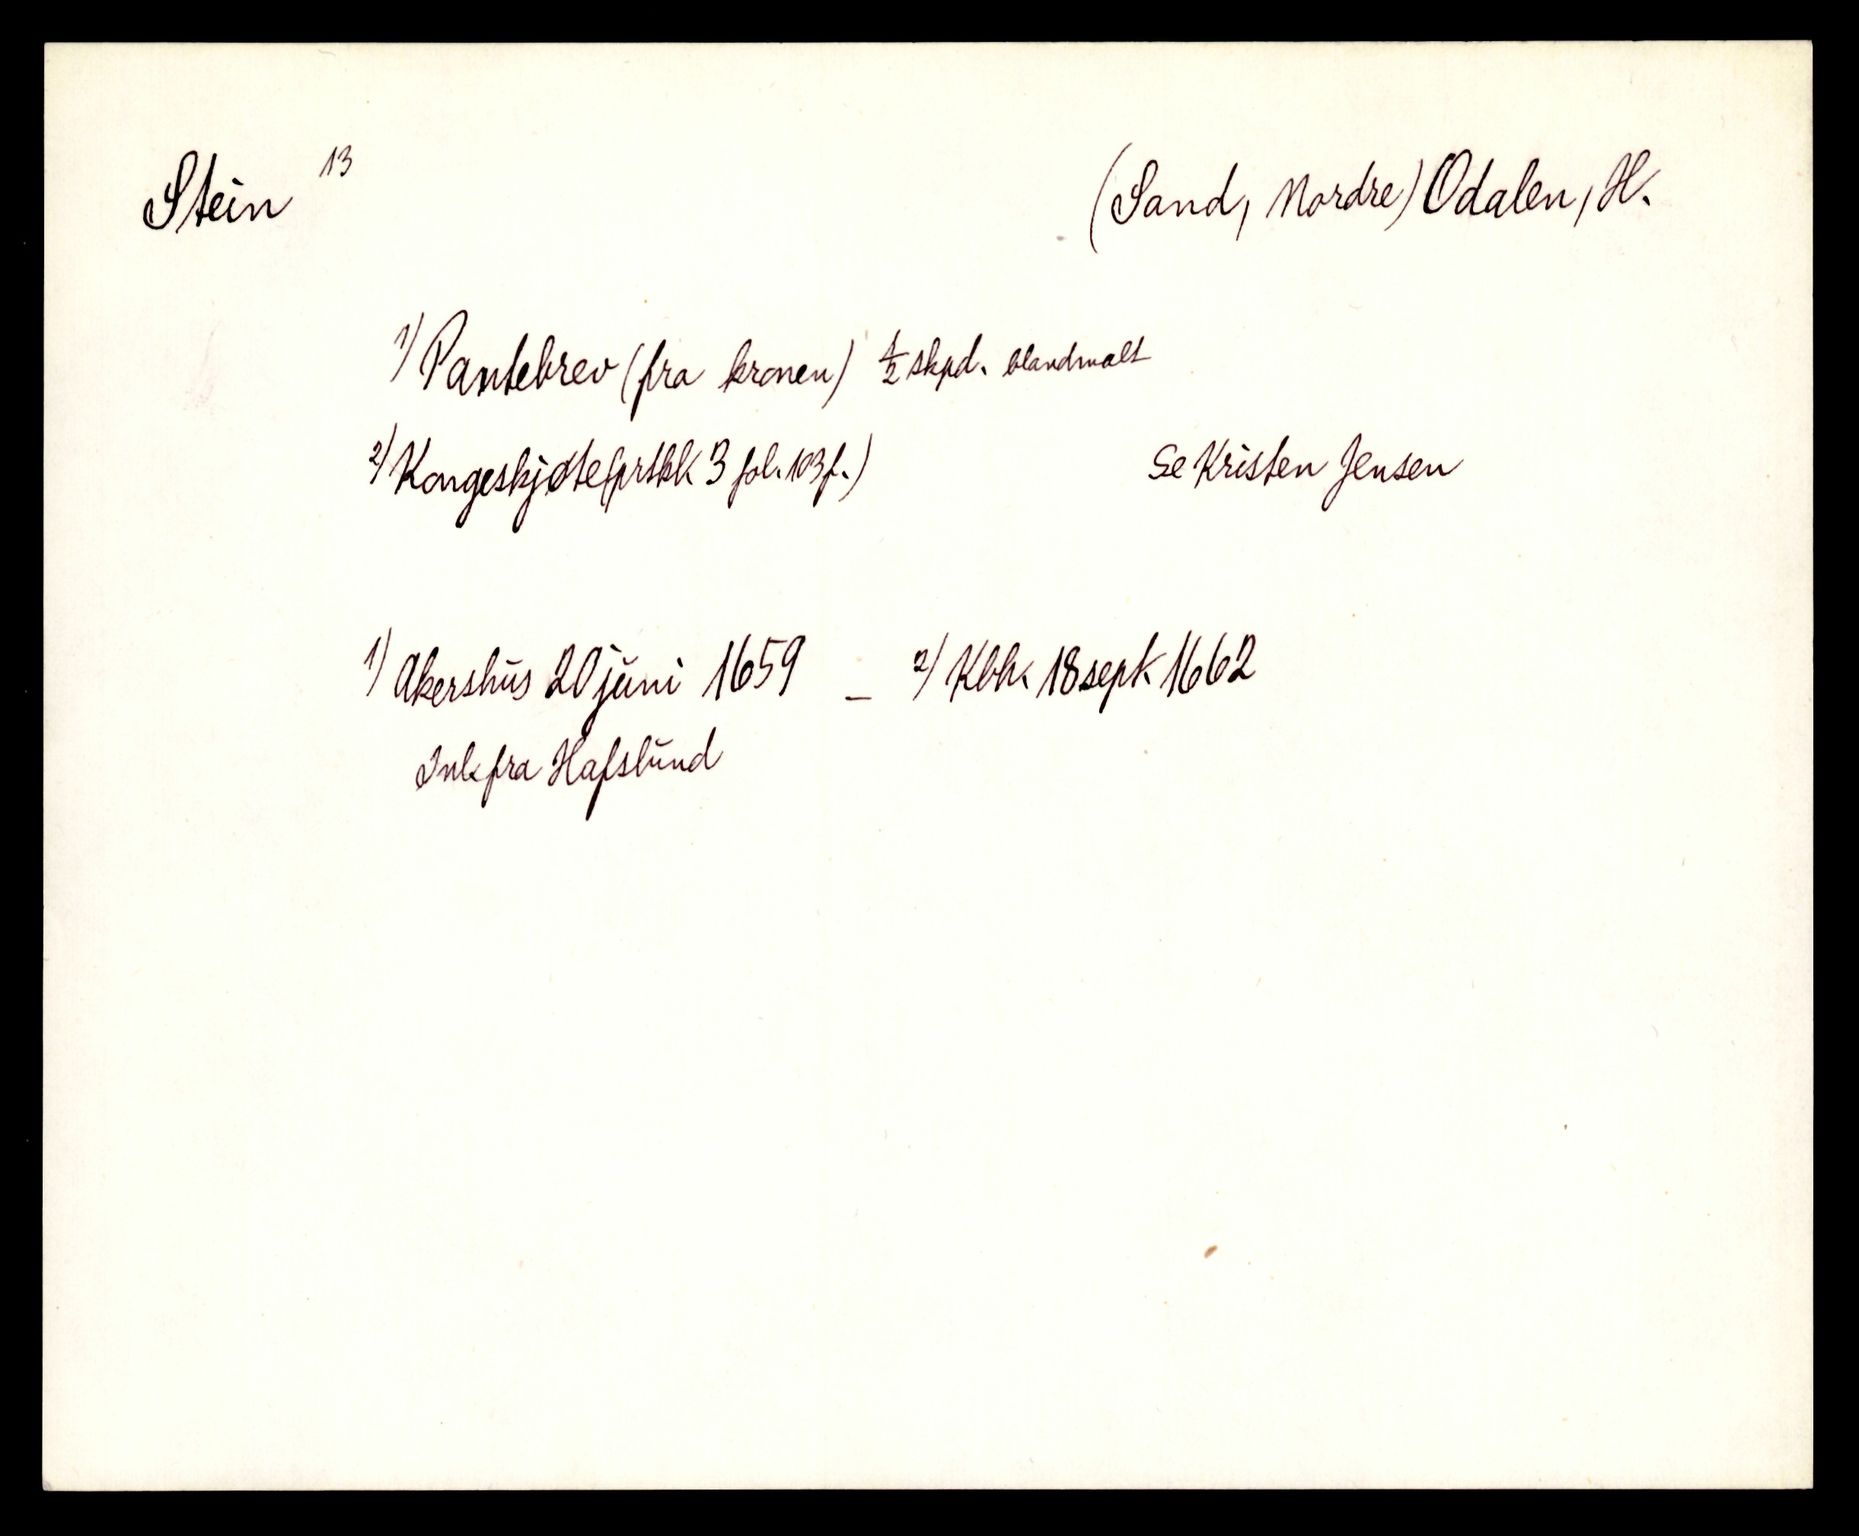 Stein 13
(Sand, Nordre) Odalen, H.
1) Pantebrev (fra kronen) ½ skpd. blandmalt
2) Kongeskjøte (prtkk 3 fol. 103 f.)
Se Kristen Jensen
1) Akershus 20 juni 1659 – 2) Kbh. 18 sept 1662
Ink. fra Hafslund